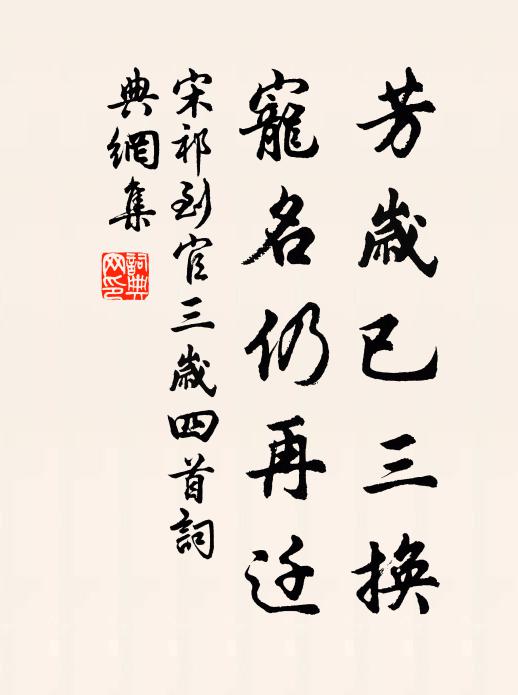 芳歲已三換
寵名仍再迁
宋祁到官三歲四首詞
典網集
詞典网印